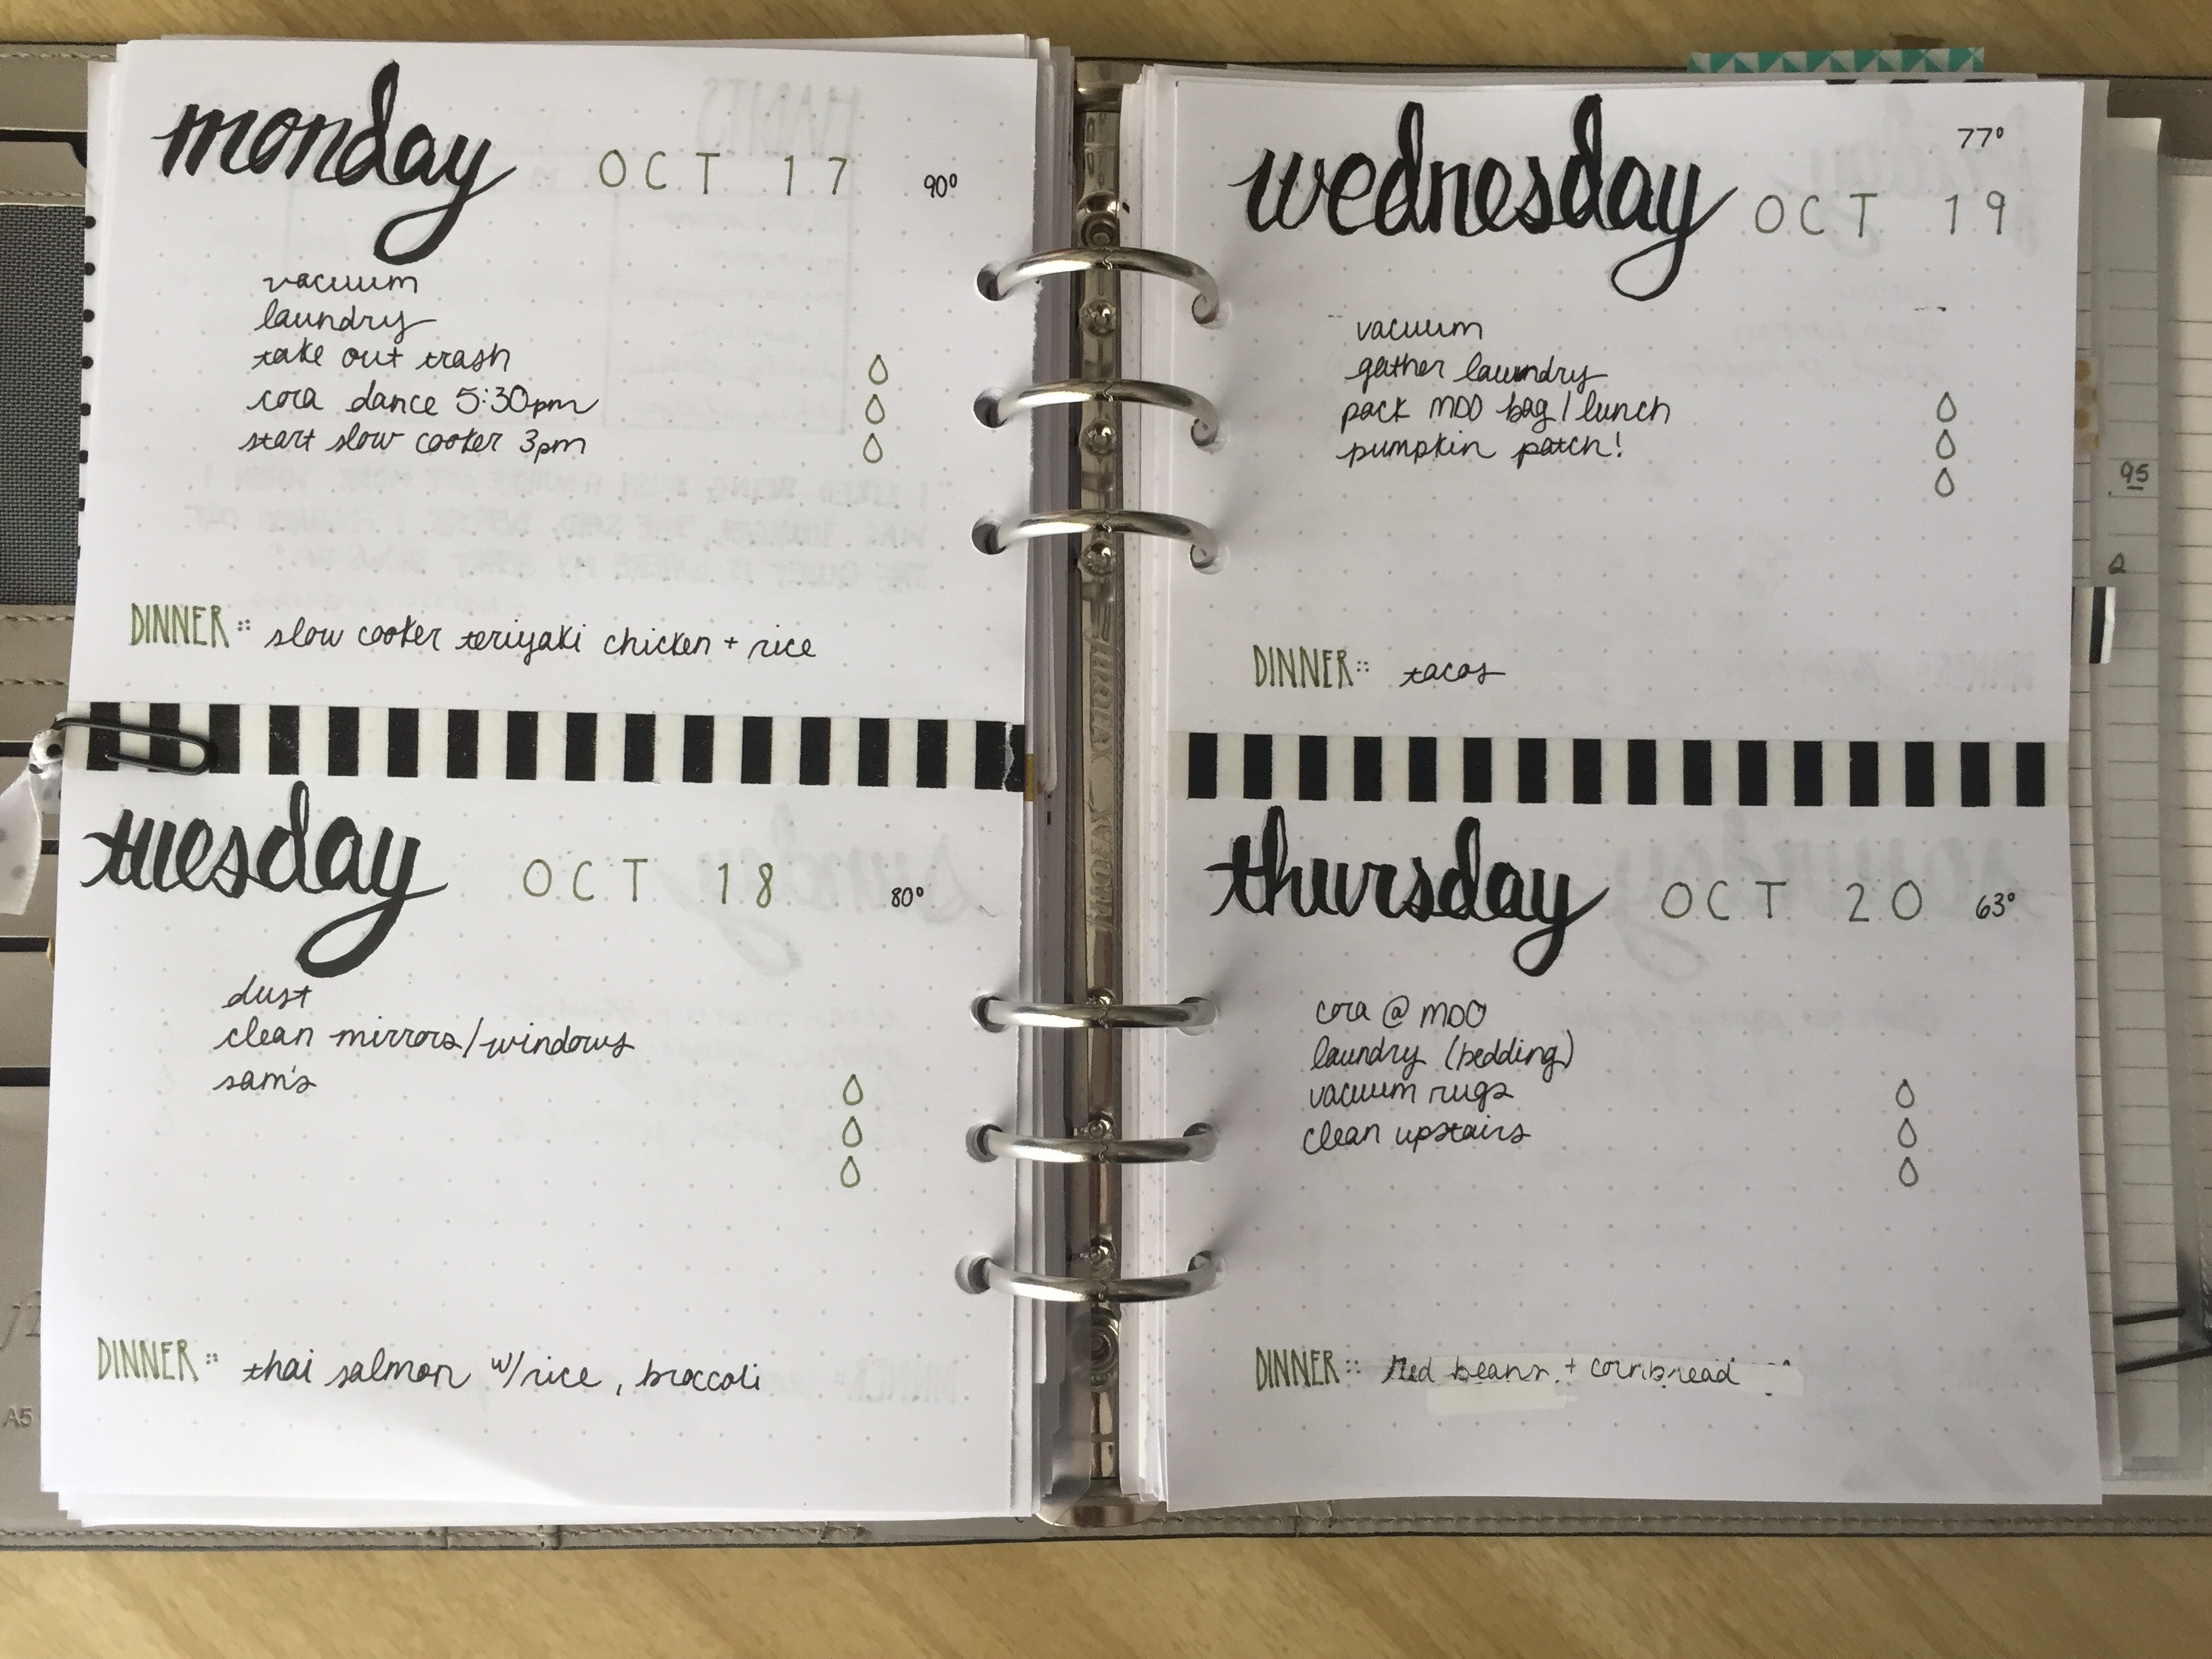 monday OCT 17 90°
vacuum
laundry
take out trash
cora dance 5:30pm
start slow cooker 3pm
DINNER :: slow cooker teriyaki chicken + rice
tuesday OCT 18 80°
dust
clean mirrors/windows
sam's
DINNER :: thai salmon w/rice, broccoli
wednesday OCT 19 77°
vacuum
gather laundry
pack MDO bag/lunch
pumpkin patch!
DINNER :: tacos
thursday OCT 20 63°
cora @ MDO
laundry (bedding)
vacuum rugs
clean upstairs
DINNER :: red beans + cornbread
95
A5